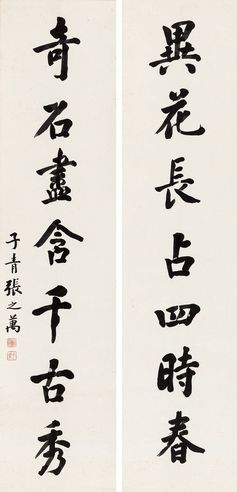 異花長占四時春
奇石盡含千古秀
子青張之萬